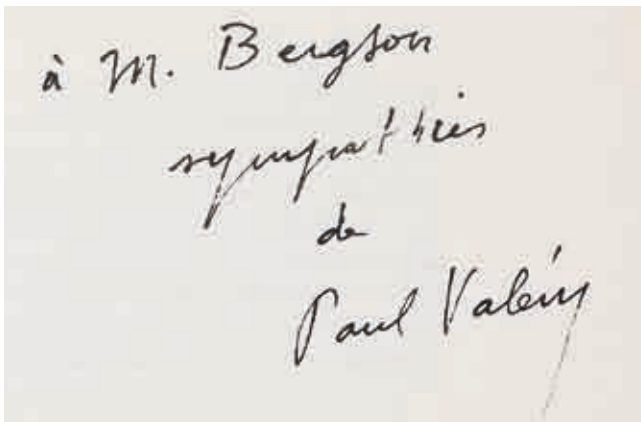 à M. Bergson
sympathies
de
Paul Valéry